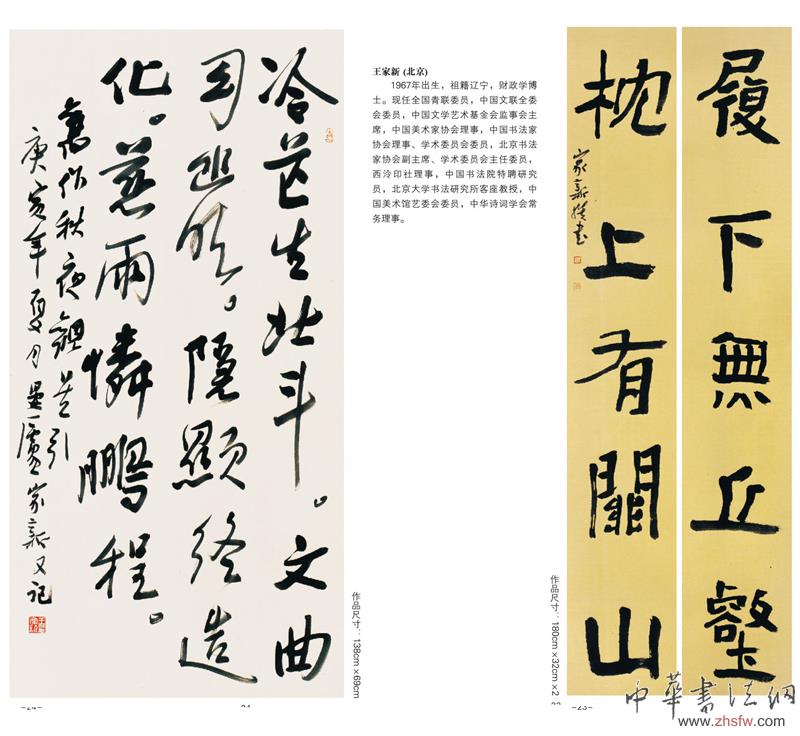 冷芒生北斗。文曲
司。隱顯終造
化。慈雨憐鵬程。
舊作秋夜觀引
庚寅年夏月廬家新又記
作品尺寸：138cm×69cm
王家新 (北京)
1967年出生，祖籍辽宁，财政学博
士。现任全国青联委员，中国文联全委
会委员，中国文学艺术基金会监事会主
席，中国美术家协会理事，中国书法家
协会理事、学术委员会委员，北京书法
家协会副主席、学术委员会主任委员，
西泠印社理事，中国书法院特聘研究
员，北京大学书法研究所客座教授，中
国美术馆艺委会委员，中华诗词学会常
务理事。
履下無丘壑
枕上有關山
家新撰書
作品尺寸：180cm×32cm×2
-24-
-23-
中華書法網
www.zhsfw.com